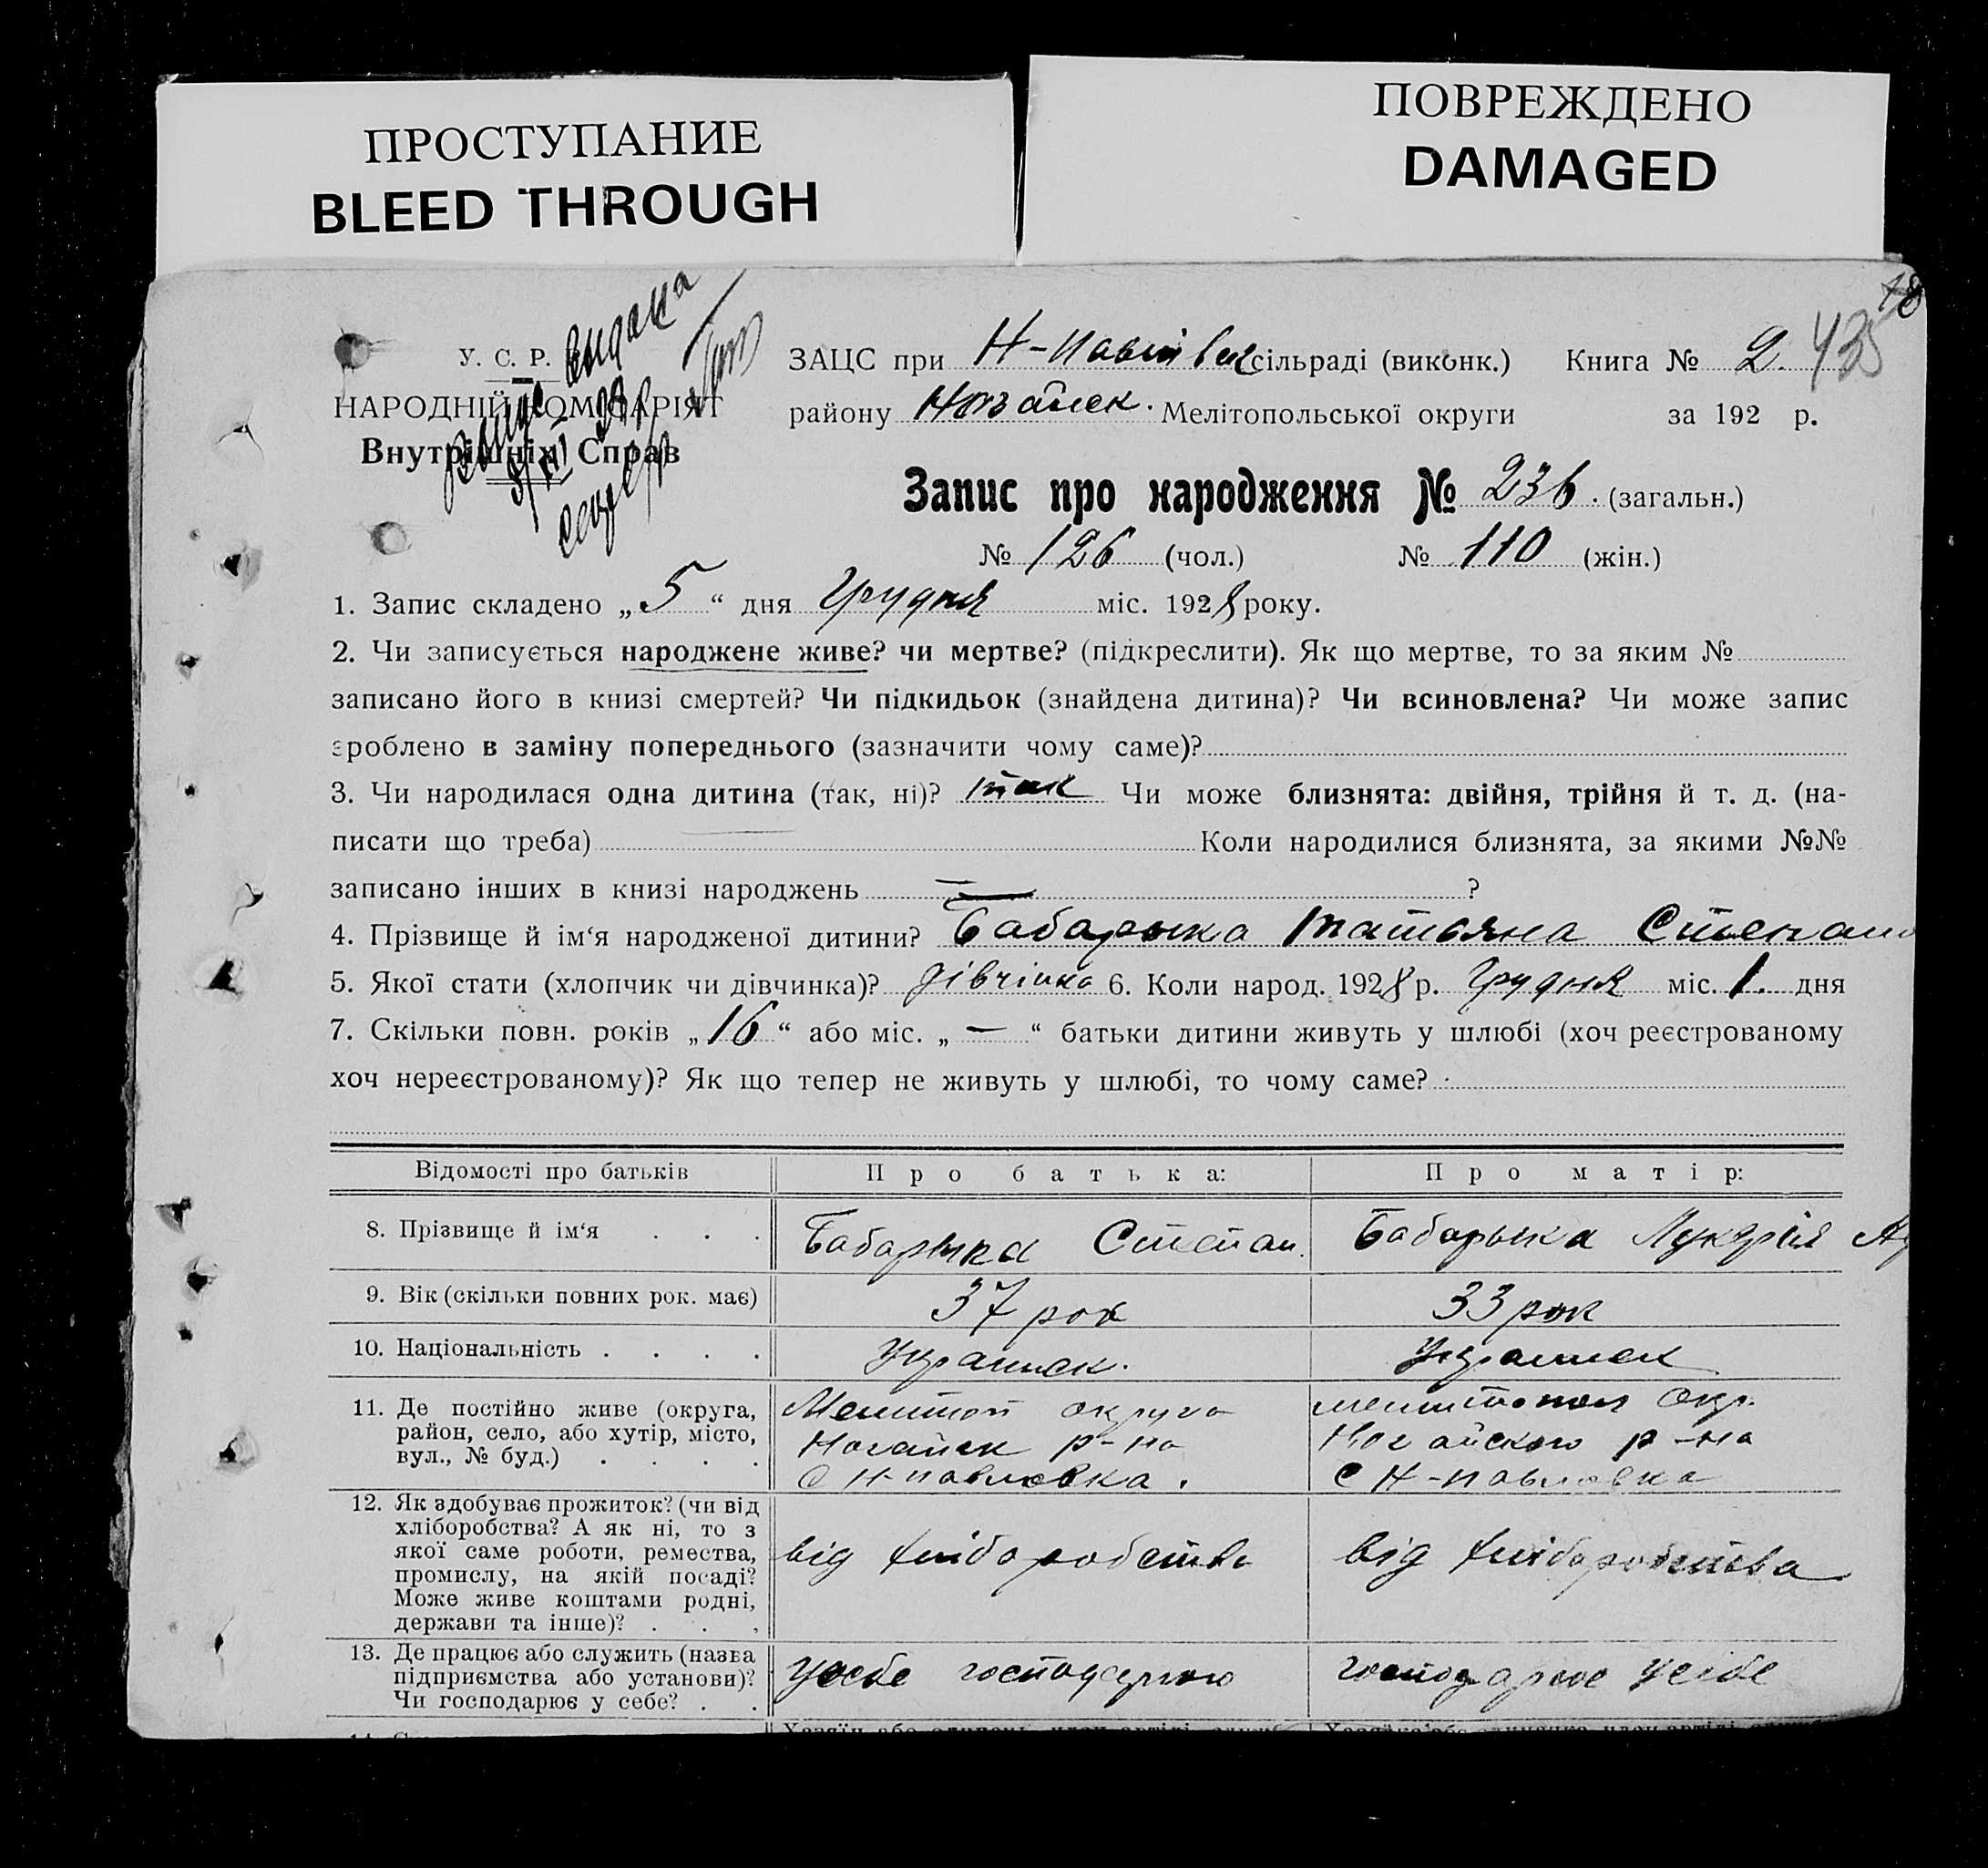 ПРОСТУПАНИЕ
BLEED THROUGH
ПОВРЕЖДЕНО
DAMAGED
18
435
У. С. Р.
НАРОДНІЙ КОМІСАРІЯТ
Внутрішніх Справ
видана
ЗАЦС при Н-Павлівск сільраді (виконк.) Книга № 2.
району Ногайск. Мелітопольської округи за 192 р.
Запис про народження № 236. (загальн.)
№ 126 (чол.) № 110 (жін.)
1. Запис складено „5“ дня Грудня міс. 1928 року.
2. Чи записується народжене живе? чи мертве? (підкреслити). Як що мертве, то за яким №
записано його в книзі смертей? Чи підкидьок (знайдена дитина)? Чи всиновлена? Чи може запис
зроблено в заміну попереднього (зазначити чому саме)?
3. Чи народилася одна дитина (так, ні)? так Чи може близнята: двійня, трійня й т. д. (на-
писати що треба) Коли народилися близнята, за якими №№
записано інших в книзі народжень — ?
4. Прізвище й ім‘я народженої дитини? Бабарыка Татьяна Степан
5. Якої стати (хлопчик чи дівчинка)? дівчінка 6. Коли народ. 1928 р. Грудня міс. 1. дня
7. Скільки повн. років „16“ або міс. „—“ батьки дитини живуть у шлюбі (хоч реєстрованому
хоч нереєстрованому)? Як що тепер не живуть у шлюбі, то чому саме?
Відомості про батьків Про батька: Про матір:
8. Прізвище й ім‘я . . . Бабарыка Степан. Бабарыка Лукерія
9. Вік (скільки повних рок. має) 37 рок 33 рок
10. Національність . . . . Украинск. Украинск
11. Де постійно живе (округа,
район, село, або хутір, місто,
вул., № буд.) . . . .
Мелитоп округа
Ногайск р-на
С Н-Павловка.
мелитопол окр.
Ногайского р-на
С Н-Павловка
12. Як здобуває прожиток? (чи від
хліборобства? А як ні, то з
якої саме роботи, ремества,
промислу, на якій посаді?
Може живе коштами родні,
держави та інше)? . . .
від хліборобства
від хліборобства
13. Де працює або служить (назва
підприємства або установи)?
Чи господарює у себе? . .
у себе господарює
господарює у себе